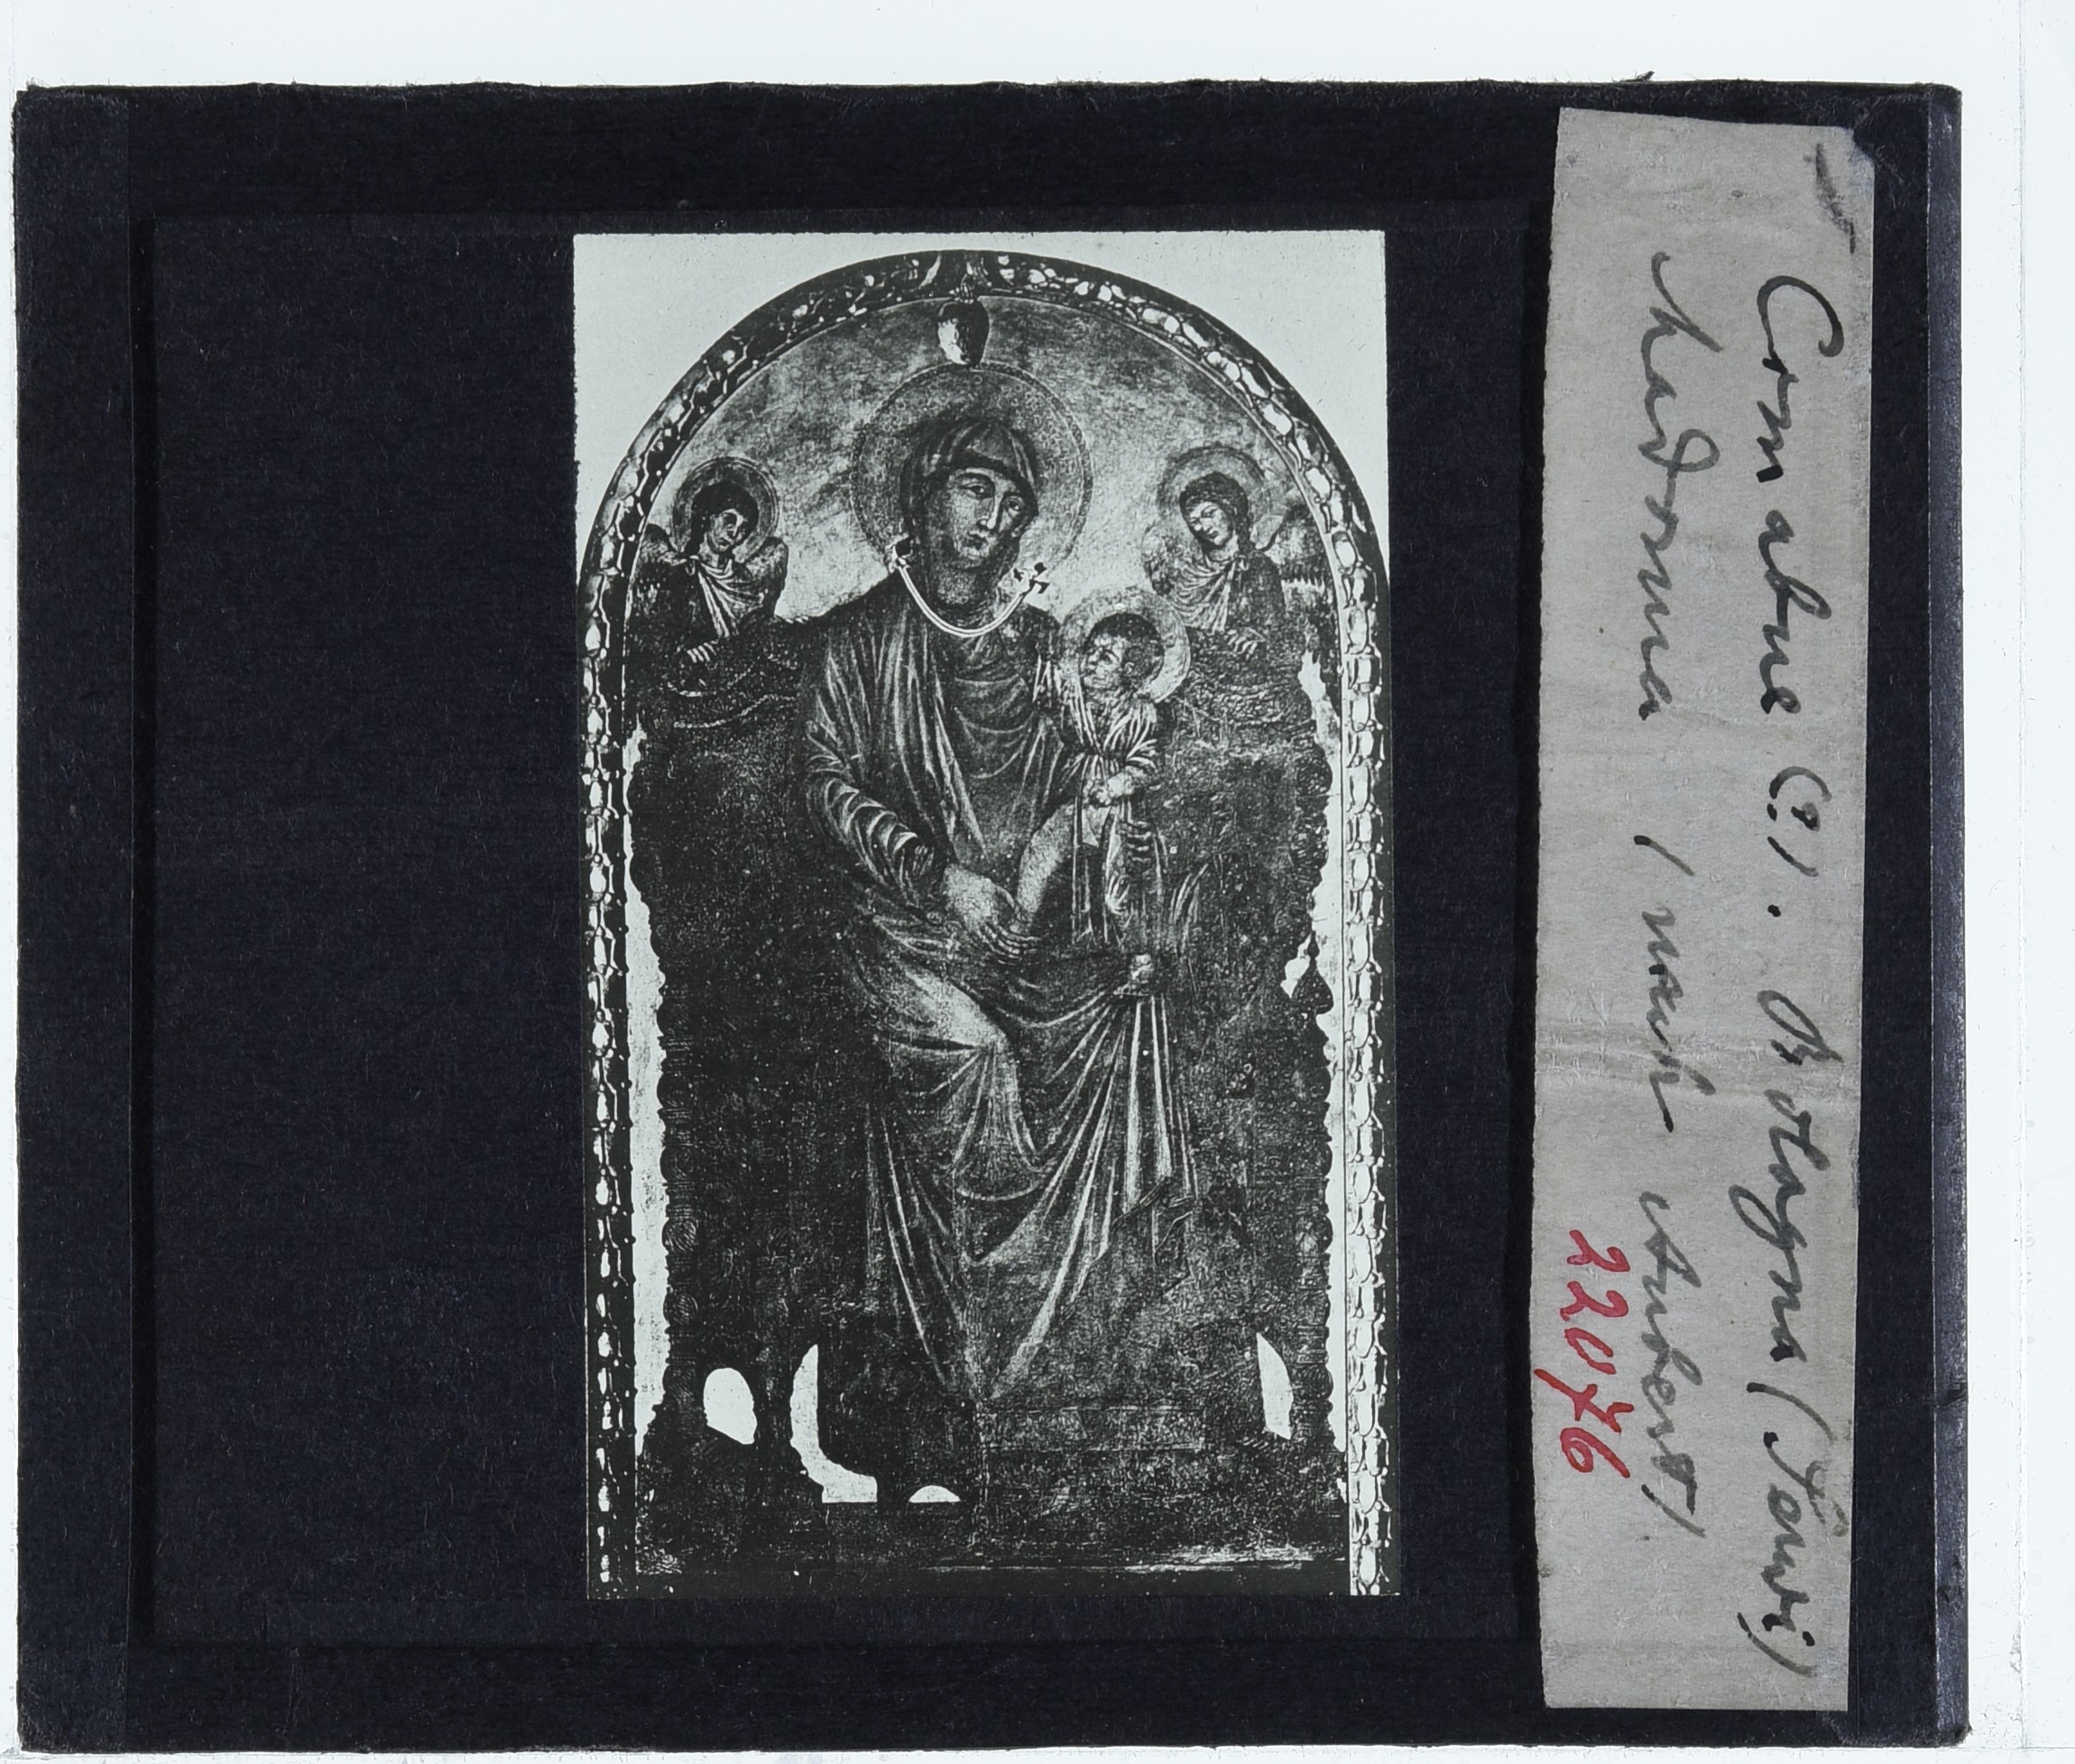 Cimabue (?). Bologna (Servi)
Madonna (nach Aubert)
22076